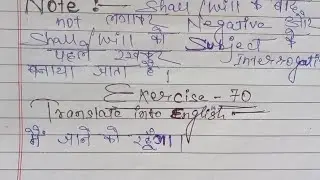 Note :- Shall/will के बाद
not लगाकर Negative और
Shall/will को Subject के
पहले रखकर Interrogati
बनाया जाता है।
Exercise - 70
Translate into English :-
मैं जाने को रहूँगा।